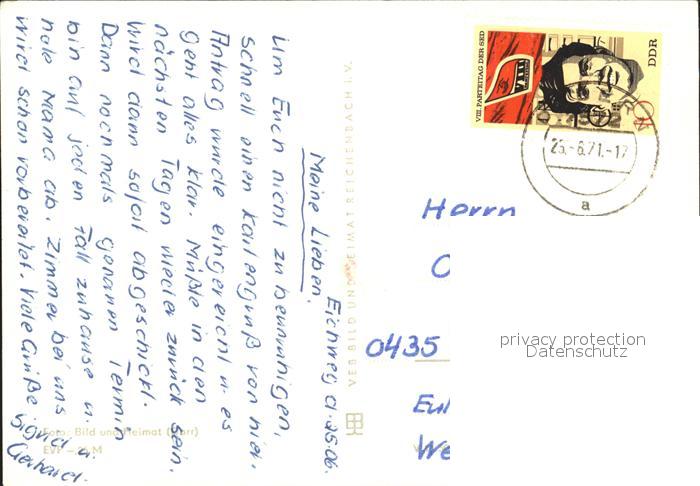 Eichweg d. 25.06.
Meine Lieben!
Um Euch nicht zu beunruhigen,
schnell einen Kartengruß von hier.
Antrag wurde eingereicht u. es
geht alles klar. Müßte in den
nächsten Tagen wieder zurück sein.
Wird dann sofort abgeschickt.
Dann nochmals genauen Termin
bin auf jeden Fall zuhause u.
hole Mama ab. Zimmer bei uns
wird schon vorbereitet. Viele Grüße
Sigrid u.
Gerhard.
Foto: Bild und Heimat
EVP
VEB BILD UND HEIMAT REICHENBACH I. V.
VIII. PARTEITAG DER SED
VIII
DDR
25.-6.71.-17
a
Herrn
0435
privacy protection
Datenschutz